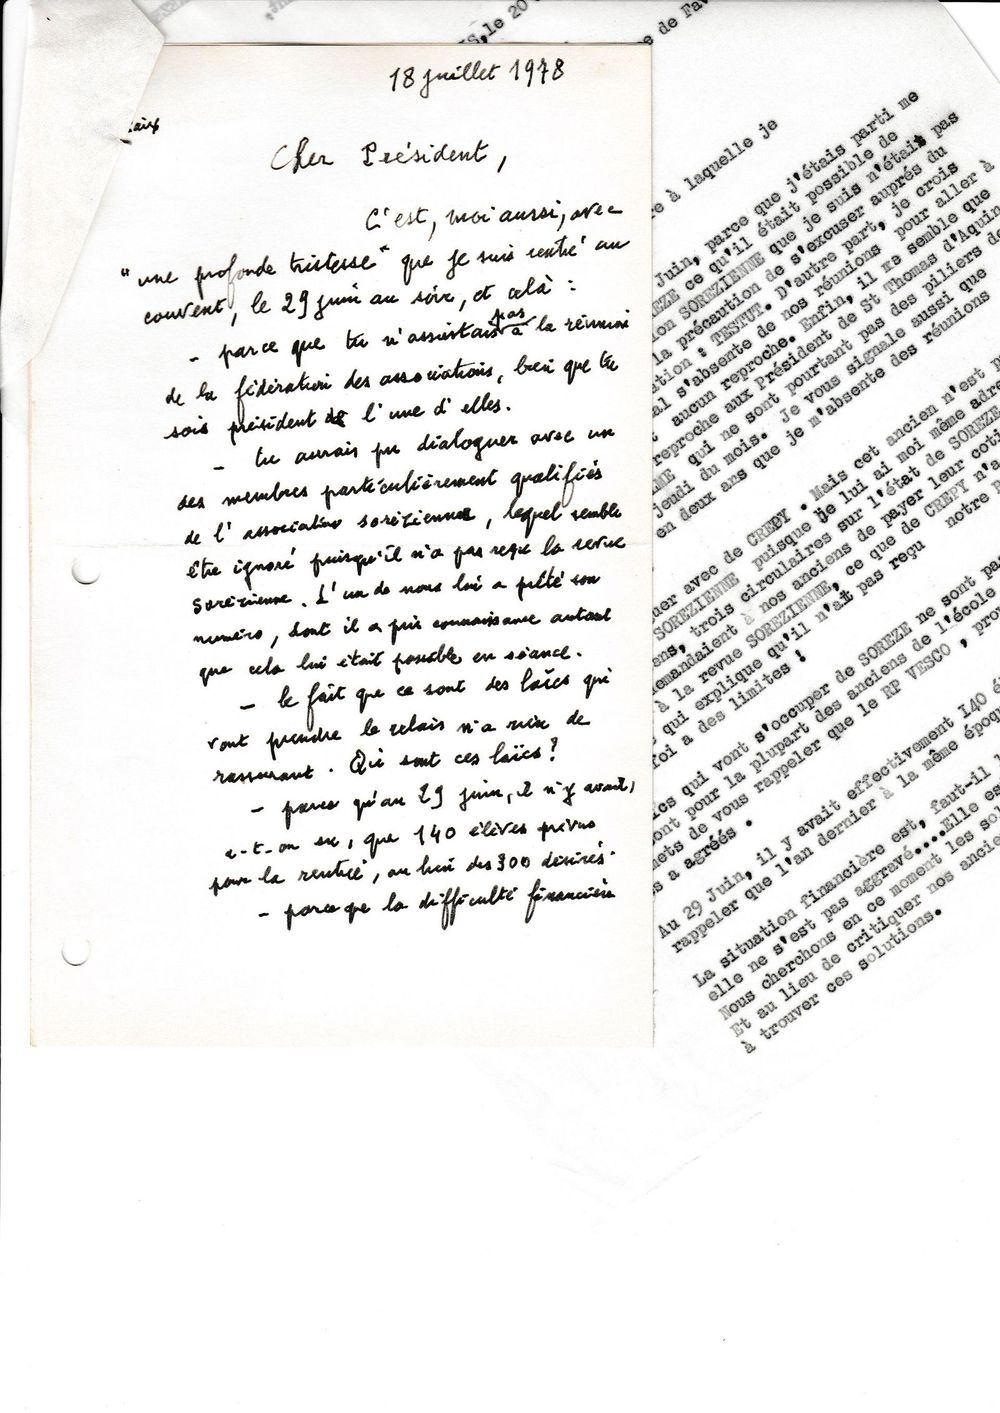 18 juillet 1978
Cher Président,
C'est, moi aussi, avec
"une profonde tristesse" que je suis rentré au
couvent, le 29 juin au soir, et celà :
- parce que tu n'assistais pas à la réunion
de la fédération des associations, bien que tu
sois président de l'une d'elles.
- tu aurais pu dialoguer avec un
des membres particulièrement qualifiés
de l'association sorézienne, lequel semble
être ignoré puisqu'il n'a pas reçu la revue
Sorézienne. L'un de nous lui a prêté son
numéro, dont il a pris connaissance autant
que cela lui était possible en séance.
- le fait que ce sont des laïcs qui
vont prendre le relais n'a rien de
rassurant. Qui sont ces laïcs?
- parce qu'au 29 juin, il n'y avait,
a-t-on su, que 140 élèves prévus
pour la rentrée, au lieu des 300 désirés.
- parce que la difficulté financière
S, le 20
e de Fav
re à laquelle je
Juin, parce que j'étais parti me
EZE ce qu'il était possible de
on SOREZIENNE que je suis n'était pas
la précaution de s'excuser auprés du
tion : TESTUT. D'autre part, je crois
al s'absente de nos réunions pour aller à
t aucun reproche. Enfin, il me semble que
reproche aux Président de St Thomas d'Aquin
ME qui ne sont pourtant pas des piliers de
jeudi du mois. Je vous signale aussi que
en deux ans que je m'absente des réunions
uer avec de CREPY . Mais cet ancien n'est p
SOREZIENNE puisque je lui ai moi même adre
ens, trois circulaires sur l'état de SOREZE
demandaient à nos anciens de payer leur coti
à la revue SOREZIENNE, ce que de CREPY n'a
qui explique qu'il n'ait pas reçu notre
foi a des limites !
ïcs qui vont s'occuper de SOREZE ne sont pas
ont pour la plupart des anciens de l'école
mets de vous rappeler que le RP VESCO , pro
s a agréés .
Au 29 Juin, il y avait effectivement 140 é
rappeler que l'an dernier à la même époq
La situation financière est, faut-il l
elle ne s'est pas aggravé...Elle es
Nous cherchons en ce moment les sol
Et au lieu de critiquer nos ancie
à trouver ces solutions.